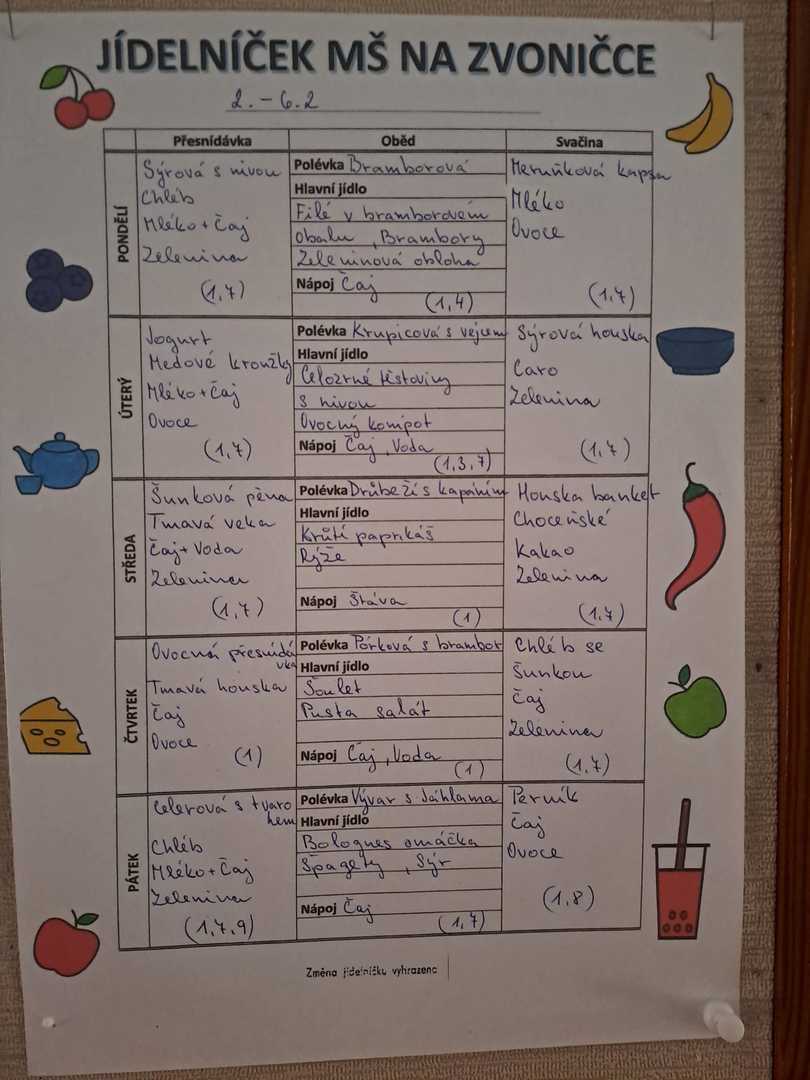 JÍDELNÍČEK MŠ NA ZVONIČCE
2. - 6.2
Přesnídávka Oběd Svačina
PONDĚLÍ
Sýrová s nivou
Chléb
Mléko + Čaj
Zelenina
(1,7)
Polévka Bramborová
Hlavní jídlo
Filé v bramborovém
obalu, Brambory
Zeleninová obloha
Nápoj Čaj
(1,4)
Meruňková kapsa
Mléko
Ovoce
(1,7)
ÚTERÝ
Jogurt
Medové kroužky
Mléko + Čaj
Ovoce
(1,7)
Polévka Krupicová s vejcem
Hlavní jídlo
Celozrné těstoviny
s nivou
Ovocný kompot
Nápoj Čaj, Voda
(1,3,7)
Sýrová houska
Caro
Zelenina
(1,7)
STŘEDA
Šunková pěna
Tmavá veka
Čaj + Voda
Zelenina
(1,7)
Polévka Drůbeží s kapáním
Hlavní jídlo
Krůtí paprikáš
Rýže
Nápoj Šťáva
(1)
Houska banket
Choceňské
Kakao
Zelenina
(1,7)
ČTVRTEK
Ovocná přesnídá
vka
Tmavá houska
Čaj
Ovoce
(1)
Polévka Pórková s brambor
Hlavní jídlo
Šoulet
Pusta salát
Nápoj Čaj, Voda
(1)
Chléb se
šunkou
Čaj
Zelenina
(1,7)
PÁTEK
Celerová s tvaro
hem
Chléb
Mléko + Čaj
Zelenina
(1,7,9)
Polévka Vývar s Jáhlama
Hlavní jídlo
Bolognes omáčka
Špagety, Sýr
Nápoj Čaj
(1,7)
Perník
Čaj
Ovoce
(1,8)
Změna jídelníčku vyhrazena